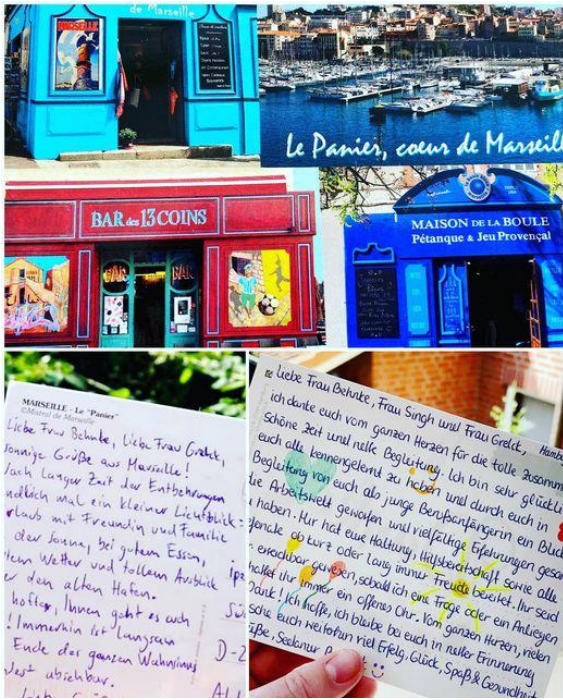 de Marseille
MARSEILLE
Le Panier, coeur de Marseill
BAR des 13 COINS
BAR
BAR
MAISON DE LA BOULE
Pétanque & Jeu Provençal
MARSEILLE - Le "Panier"
©Mistral de Marseille
Liebe Frau Behnke, Liebe Frau Grelck,
sonnige Grüße aus Marseille!
Nach langer Zeit der Entbehrungen
endlich mal ein kleiner Lichtblick:
rlaub mit Freundin und Familie
der Sonne, bei gutem Essen,
tem Wetter und tollem Ausblick
er den alten Hafen.
hoffe, Ihnen geht es auch
! Immerhin ist langsam
Ende der ganzen Wahnsinns
dest absehbar.
D-2
Liebe Frau Behnke, Frau Singh und Frau Grelck,
Hamb
ich danke euch vom ganzen Herzen für die tolle Zusamm
schöne Zeit und nette Begleitung. Ich bin sehr glücklich
euch alle kennengelernt zu haben und durch euch in
Begleitung von euch als junge Berufsanfängerin ein Blick
die Arbeitswelt geworfen und vielfältige Erfahrungen gesam
haben. Ihr habt eine Haltung, Hilfsbereitschaft sowie alle
ob kurz oder lang immer Freude bereitet. Ihr seid
erreichbar gewesen, sobald ich eine Frage oder ein Anliegen
hattet ihr immer ein offenes Ohr. Vom ganzen Herzen, vielen
Dank! Ich hoffe, ich bleibe bei euch in netter Erinnerung
sche euch weiterhin viel Erfolg, Glück, Spaß & Gesundheit
üße,